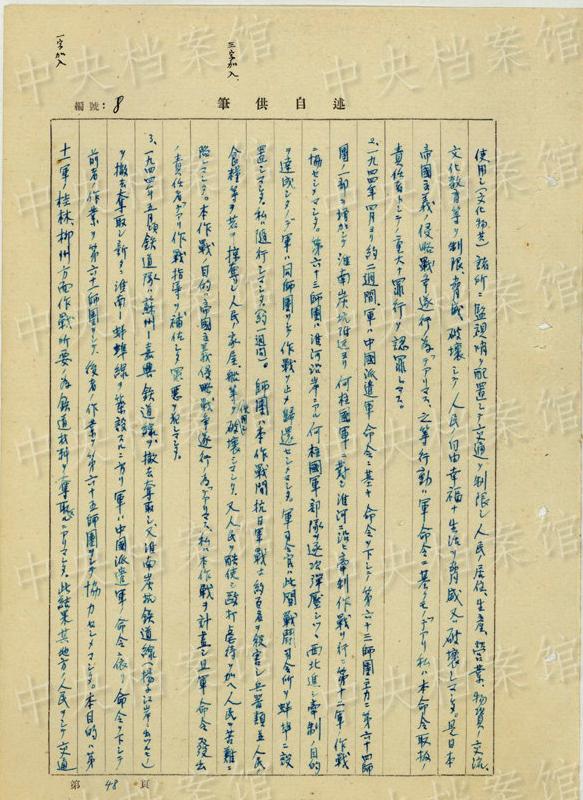 一字加入
三字加入
編號：8
筆供自述
使用シ(文化物共)諸所ニ監視哨ヲ配置シテ交通ヲ制限シ人民ノ居住、生産、営業、物資ノ交流、
文化教育等ヲ制限、脅威、破壊シテ人民ノ自由幸福ナ生活ヲ脅威又ハ破壊シマシタ。是日本
帝国主義ノ侵略戦争遂行ノ為デアリマス。之等行動ハ軍命令ニ基クモノデアリ私ハ本命令取扱ノ
責任者トシテノ重大ナ罪行ヲ認罪シマス。
2、一九四四年四月ヨリ約二週間、軍ハ中國派遣軍ノ命令ニ基キ命令ヲ下シテ第六十三師團主力ニ第六十四師
團ノ一部ヲ増加シテ淮南炭坑附近ヨリ何柱國軍ニ対シ淮河ニ沿ヒ牽制作戦ヲ行ヒ第十二軍ノ作戦
ニ協セシメマシタ。第六十三師團ハ淮河沿岸ニアル何柱國軍部隊ヲ逐次弾壓シツヽ西北進シ牽制ノ目的
ヲ達成シタノデ軍ハ同師團ヲシテ作戦ヲ止メ帰還セシメマシタ。軍司令官ハ此間戦闘司令所ヲ蚌埠ニ設
置シマシタ。私ハ随行シマシタ(約一週間)。師團ハ本作戦間抗日軍戦士約百名ヲ殺害シ兵器類並人民ノ
食糧等ヲ若干掠奪シ人民ノ家屋、縦等ヲ使用シ破壊シマシタ。又人民ヲ酷使シ殴打虐待ヲ加ヘ人民ヲ苦難ニ
陥レマシタ。本作戦ノ目的ハ帝国主義侵略戦争遂行ノ為デアリマス。私ハ本作戦ヲ計畫シ且軍命令發出
ノ責任者デアリ作戦指導ヲ補佐シテ罪悪ヲ犯シマシタ。
3、一九四四年五月頃鉄道隊ハ蘇州－嘉興鉄道線ヲ撤去奪取シ又淮南炭坑鉄道線(揚子江岸ニ出ルモノ)
ヲ撤去奪取シ新タニ淮南－蚌埠線ヲ築設スルニ方リ軍ハ中國派遣軍ノ命令ニ依リ命令ヲ下シテ
前者ノ作業ヲ第六十一師團ヲシテ、後者ノ作業ヲ第六十五師團ヲシテ協力セシメマシタ。本目的ハ第
十一軍ノ桂林柳州方面作戦所要ノ為鉄道材料ヲ奪取スルニアリマシタ。此結果其地方ノ人民ヲシテ交通
第 48 頁
中央档案馆